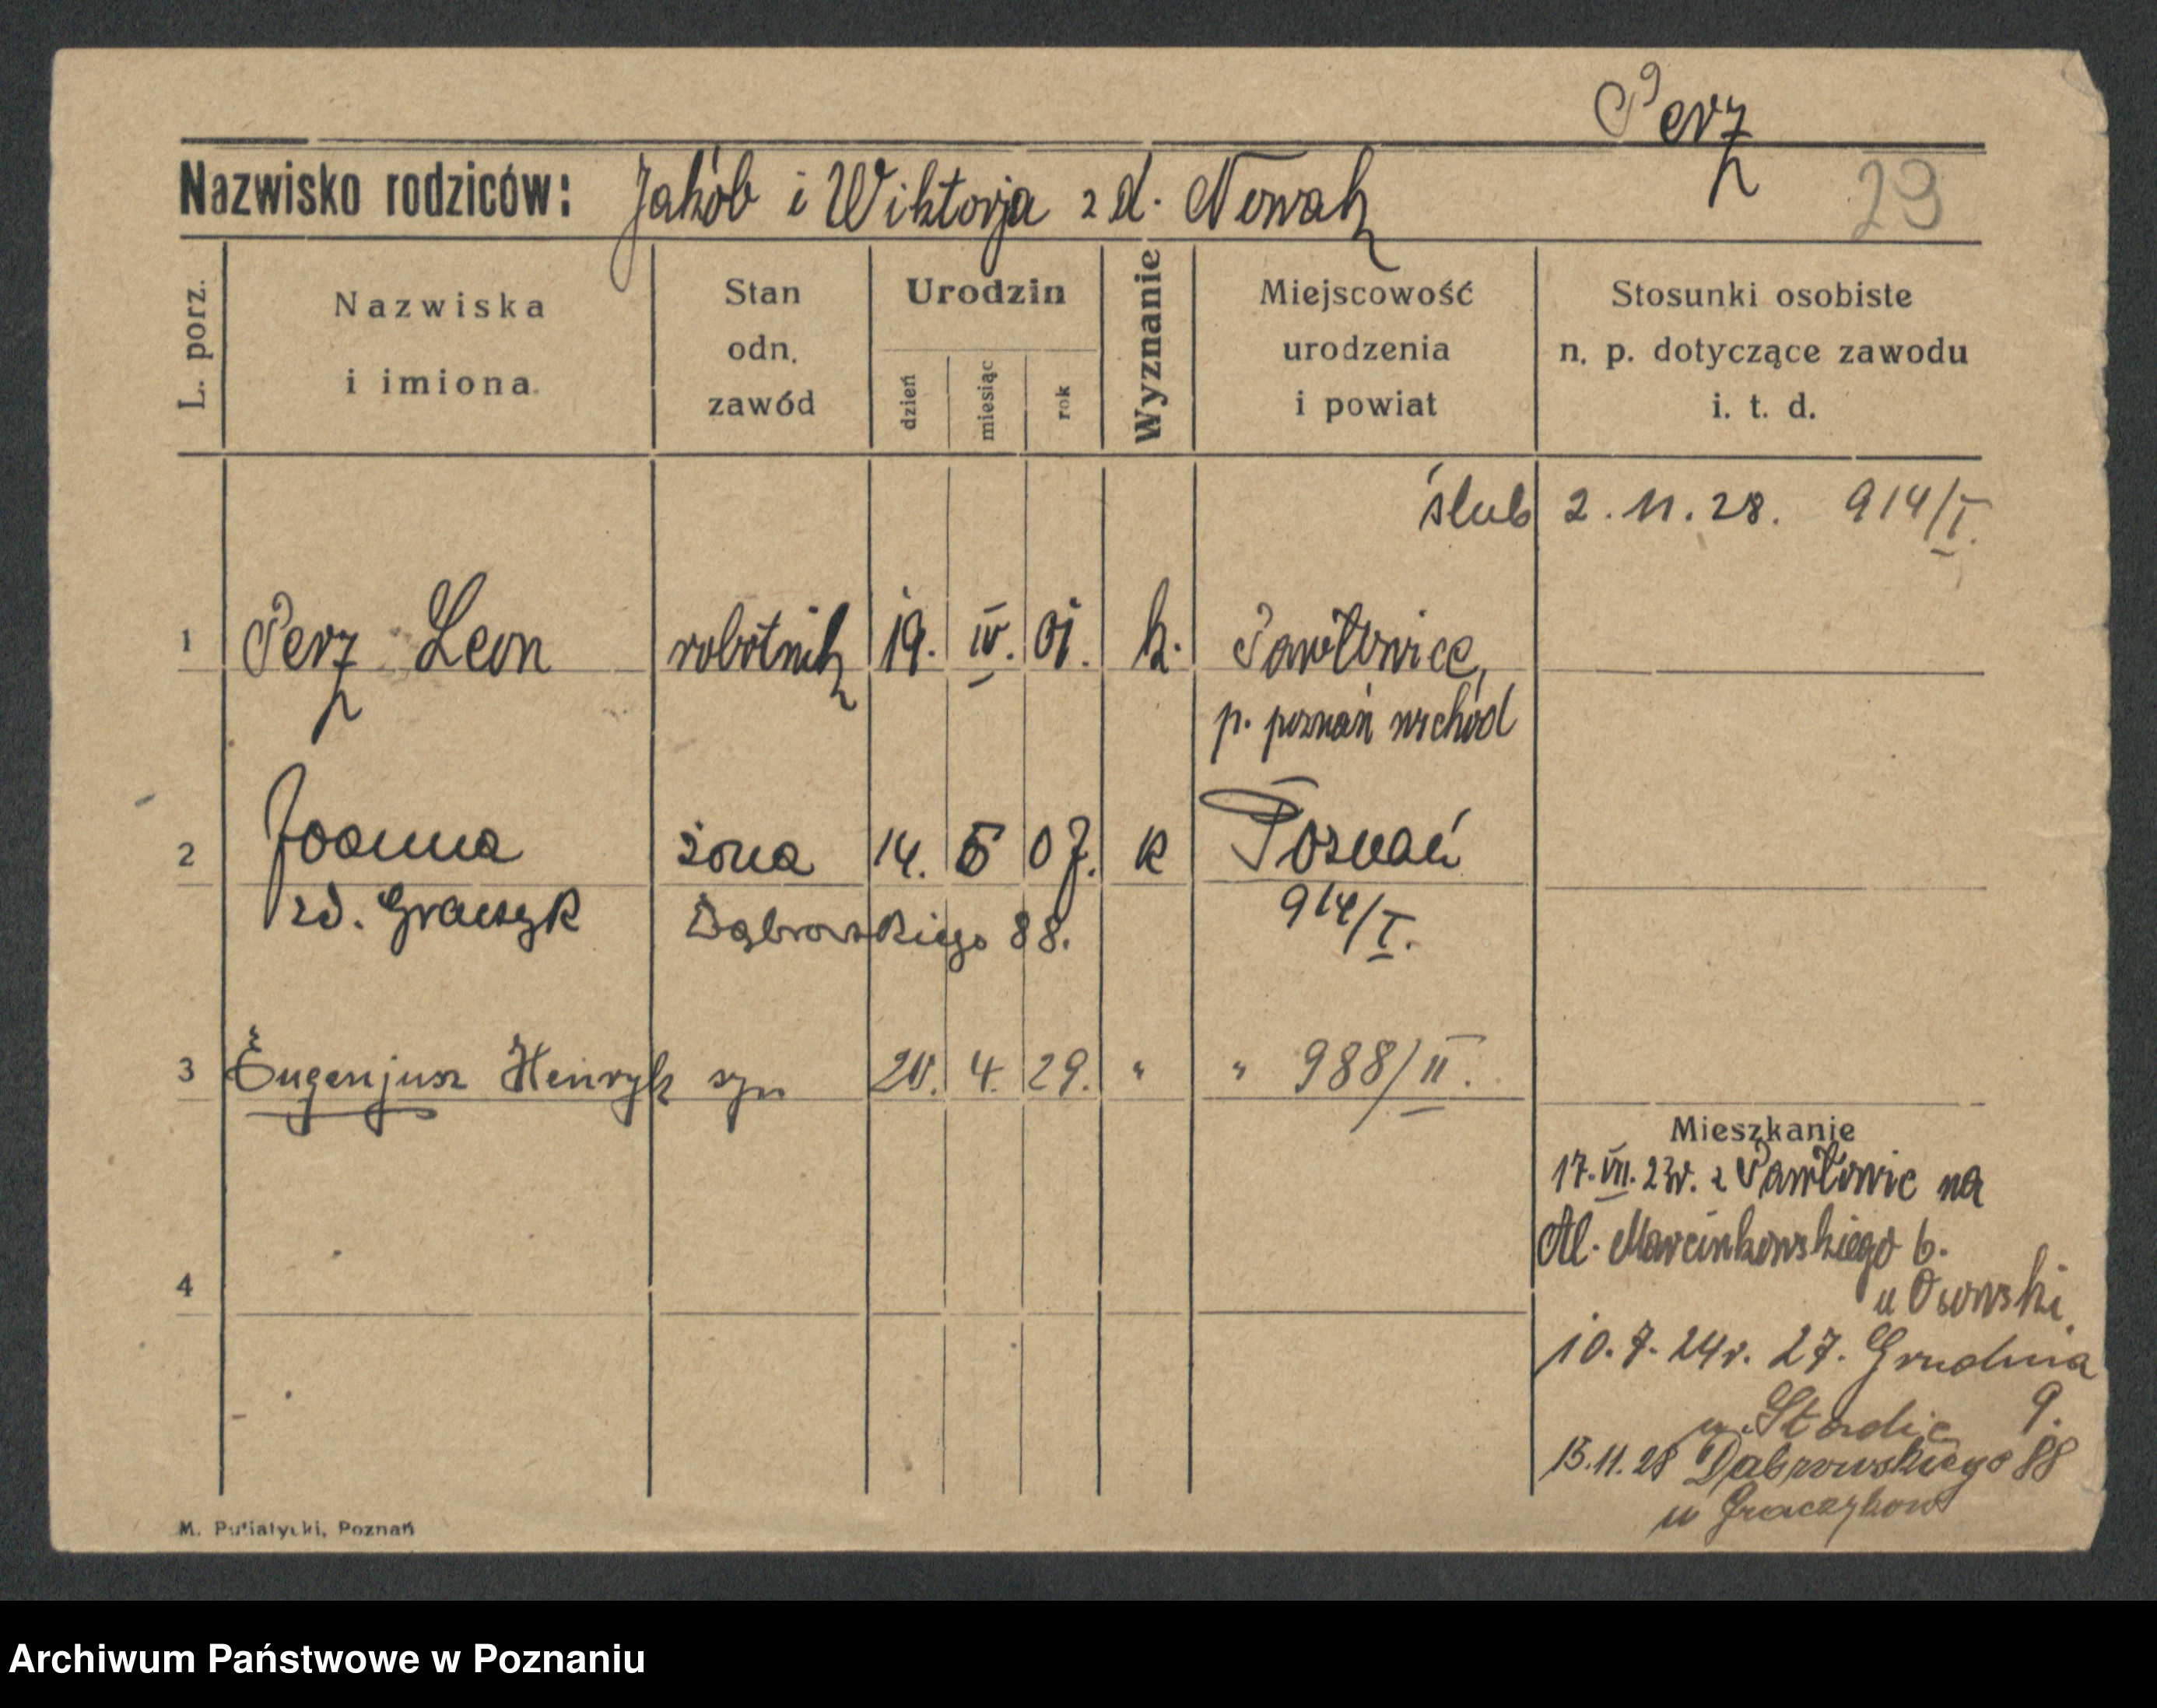 Perz
Nazwisko rodziców: Jakób i Wiktorja zd. Nowak 29
L. porz. Nazwiska i imiona Stan odn. zawód Urodzin dzień miesiąc rok Wyznanie Miejscowość urodzenia i powiat Stosunki osobiste n. p. dotyczące zawodu i. t. d.
ślub 2. 11. 28. 914/I.
1 Perz Leon robotnik 19. IV. 01. k. Pawłowice,
p. poznań wschód
2 Joanna żona 14. 5 07. k Poznań
zd. Graczyk Dąbrowskiego 88. 914/I.
3 Eugenjusz Henryk syn 20. 4. 29. " " 988/II.
Mieszkanie
17. VII. 23r. z Pawłowic na
Al. Marcinkowskiego 6.
4
u Osowski.
10. 7. 24r. 27. Grudnia
9.
u
15. 11. 28 Dąbrowskiego 88
u Graczyków
M. Putiatycki, Poznań
Archiwum Państwowe w Poznaniu